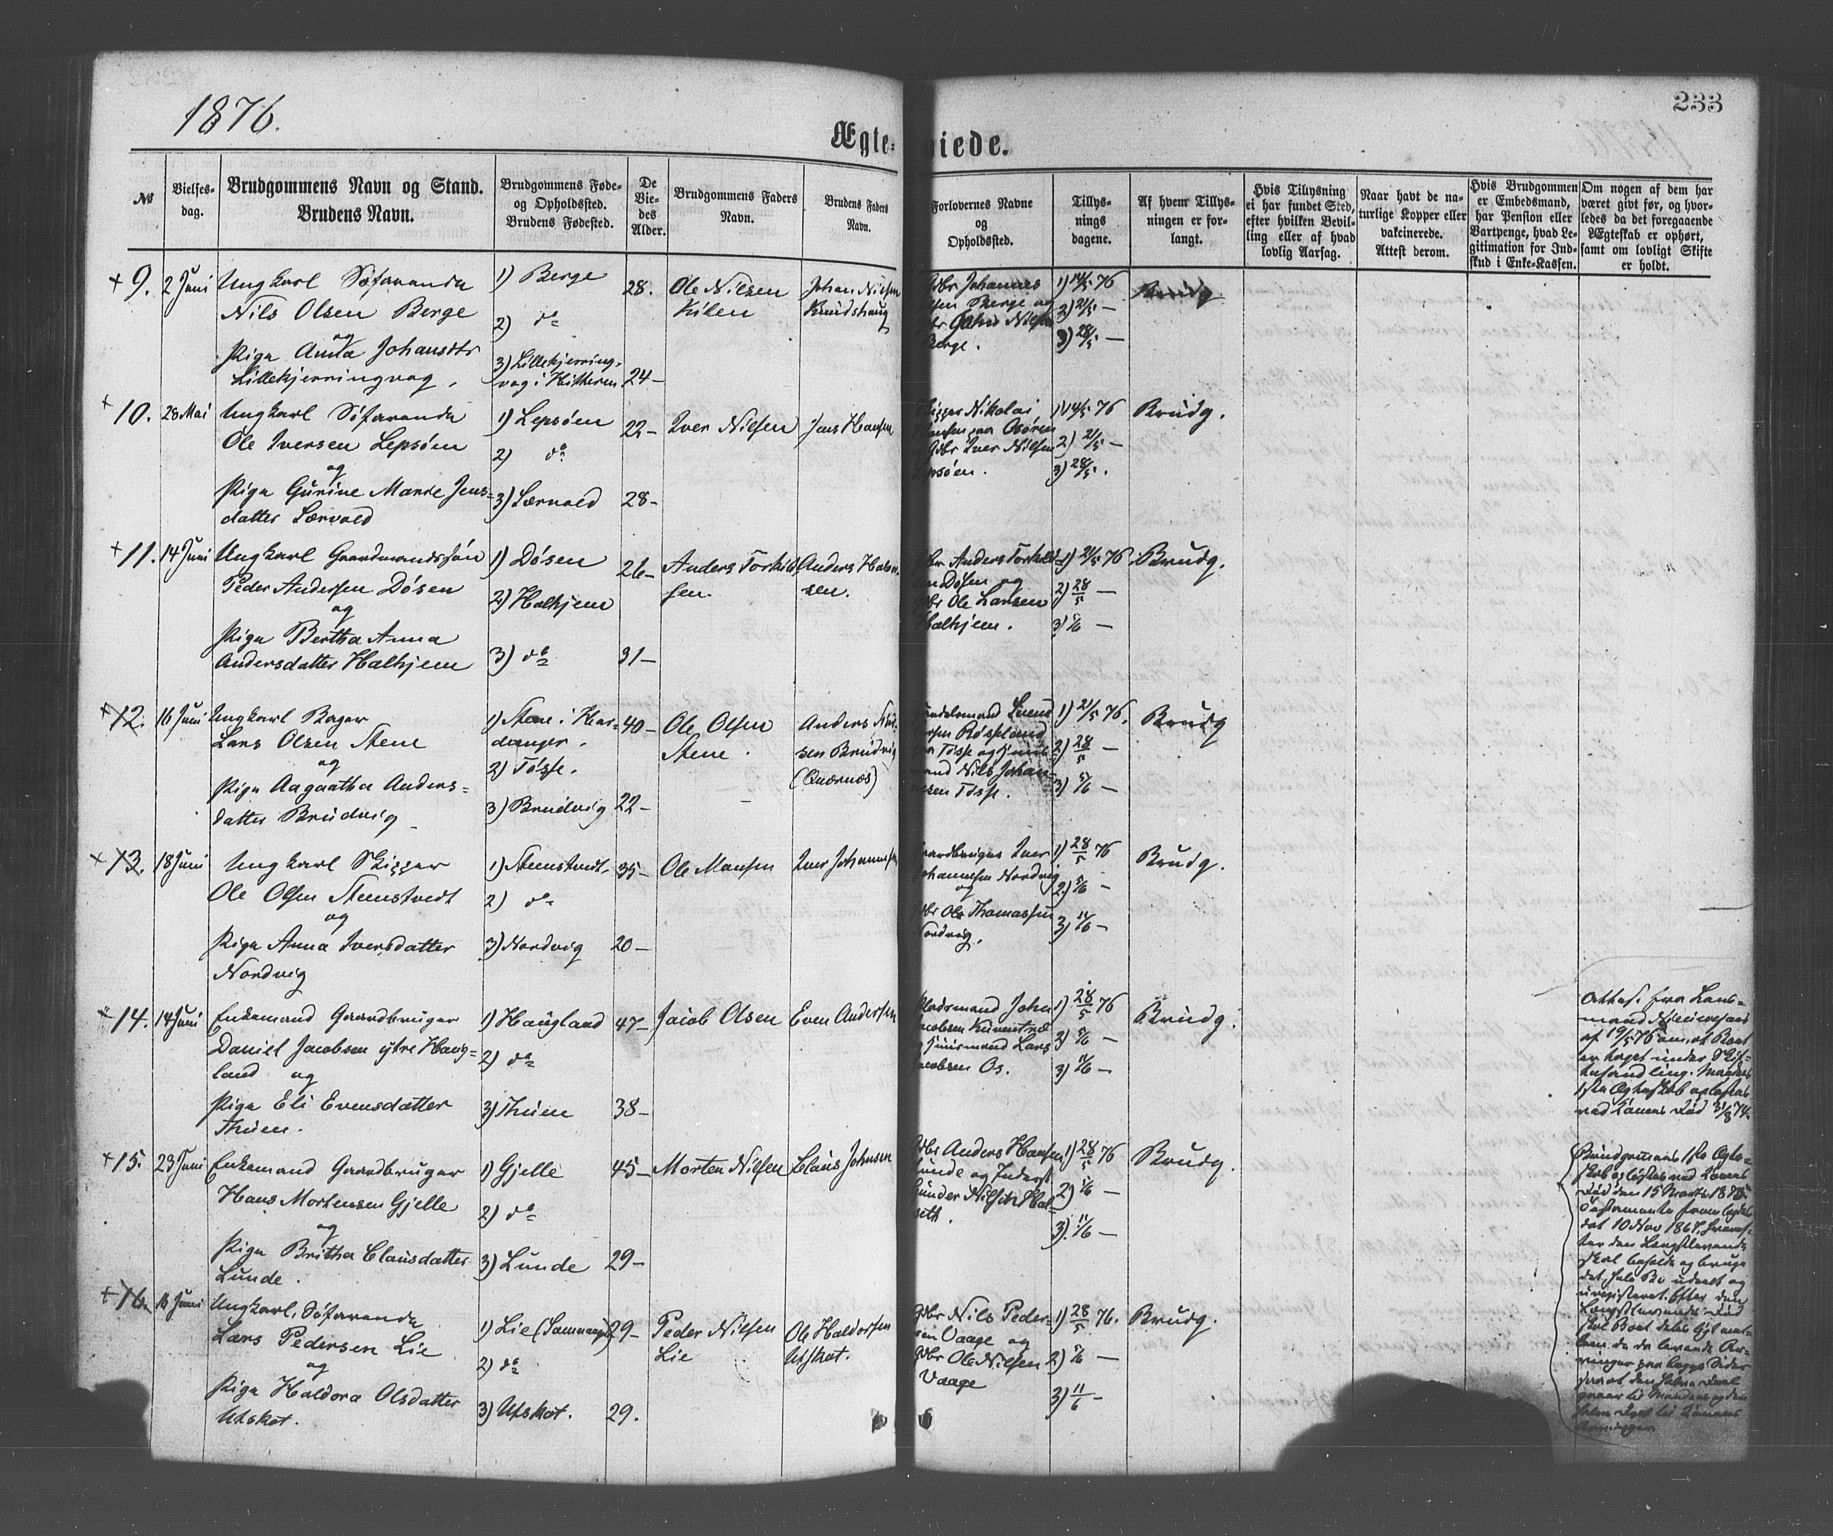 1876.
233
Ægte=
viede.
№
Vielses-
dag.
Brudgommens Navn og Stand.
Brudens Navn.
Brudgommens Føde-
og Opholdssted.
Brudens Fødested.
De
Vie-
des
Alder.
Brudgommens Faders
Navn.
Brudens Faders
Navn.
Forlovernes Navne
og
Opholdssted.
Tillys-
nings
dagene.
Af hvem Tillys-
ningen er for-
langt.
Hvis Tillysning
ei har fundet Sted,
efter hvilken Bevil-
ling eller af hvad
lovlig Aarsag.
Naar havt de na-
turlige Kopper eller
vakcinerede.
Attest derom.
Hvis Brudgommen
er Embedsmand,
har Pension eller
Vartpenge, hvad Le-
gitimation for Ind-
skud i Enke-Kassen.
Om nogen af dem har
været givt før, og hvor-
ledes da det foregaaende
Ægteskab er ophørt,
samt om lovligt Skifte
er holdt.
+ 9. 2 Juni
Ungkarl Søfarende
Nils Olsen Berge
og
Pige Anna Johansdtr
Lillekjerringvog.
1) Berge
2) do
3) Lillekjerring-
vog i Hitteren
28.
24-
Ole Nilsen
Kilen
Johan Nilsen
Knudshaug
Gbr Johannes
Berge og
Gbr Nilsen
Berge.
1) 14/5 76
2) 21/5 -
3) 28/5 -
Brudg
+ 10. 28 Mai
Ungkarl Søfarende
Ole Iversen Lepsøen
og
Pige Gurine Marie Jens=
datter Særvold
1) Lepsøen
2) do
3) Særvold
22-
28-
Iver Nilsen
Jens Hansen
Skipper Nikolai
Hansen paa Osøren
Gbr Iver Nilsen
Lepsøen.
1) 14/5 76
2) 21/5 -
3) 28/5.
Brudg.
+ 11. 14 Juni
Ungkarl Gaardmandssøn
Peder Andersen Døsen
og
Pige Bertha Anna
Andersdatter Halhjem
1) Døsen
2) Halhjem
3) do
26-
31-
Anders Torkild-
sen.
Anders Halvor-
sen.
Gbr Anders Torkild-
sen Døsen og
Gbr Ole Larsen
Halhjem.
1) 21/5 76
2) 28/5 -
3) 5/6 -
Brudg.
+ 12. 16 Juni
Ungkarl Bager
Lars Olsen Stene
og
Pige Aagaatha Anders=
datter Brudvig
1) Stene i Har-
danger.
2) Tøsse.
3) Brudvig
40-
22-
Ole Olsen
Stene.
Anders
sen Brudvig
(Quernes)
Handelsmand
Røssland
paa Tøsse og Huus
mand Nils Johan-
nesen Tøsse.
1) 21/5 76.
2) 28/5 -
3) 5/6 -
Brudg
+ 13. 18 Juni
Ungkarl Skipper
Ole Olsen Stenstvedt
og
Pige Anna Iversdatter
Nordvig
1) Stenstvedt.
2) do
3) Nordvig
35-
20-
Ole Monsen
Iver Johannesen
Gaardbruger Iver
Johannesen Nordvig
og
Gbr Ole Thomassen
Nordvig.
1) 28/5 76
2) 5/6 -
3) 11/6 -
Brudg.
+ 14. 14 Juni
Enkemand Gaardbruger
Daniel Jacobsen ytre Haug-
land og
Pige Eli Evensdatter
Thuen.
1) Haugland
2) do
3) Thuen
47-
38-
Jacob Olsen
Even Andersen
Pladsmand John
Jacobsen Kuventræ
og Huusmand Lars
Jacobsen Os.
1) 28/5 76
2) 5/6 -
3) 11/6 -
Brudg.
Attest fra Lens-
mand
af 19/5 76 om, at Boet
er taget under Skif-
tebehandling. Mandens
1ste Ægteskab opløstes
ved Konens Død 31/8 74.
+ 15. 23 Juni
Enkemand Gaardbruger
Hans Mortensen Gjelle
og
Pige Britha Clausdatter
Lunde.
1) Gjelle
2) do
3) Lunde
45-
29-
Morten Nilsen
Claus Johnsen
Gbr Anders Hansen
Lunde og Inderst
Gunder Nilsen
1) 28/5 76
2) 5/6 -
3) 11/6 -
Brudg.
Brudgommens 1ste Ægte-
skab opløstes ved Konens
Død den 15 Marts 1875
Testamente fremlagdes
dat 10 Nov 1867, hvoref-
ter den Længstlevende
skal beholde og bruge
det hele Bo udeelt og
uregistreret. Efter den
Længstlevendes Død
skal Boet deles
+ 16. 16 Juni
Ungkarl, Søfarende
Lars Pedersen Lie
og
Pige Haldora Olsdatter
Utskot.
1) Lie (Samnanger)
2) do
3) Utskot.
29-
29.
Peder Nilsen
Lie
Ole Haldorsen
Utskot.
Gbr Nils Peder-
sen Vaage og
Gbr Ole Nilsen
Vaage
1) 28/5 76.
2) 5/6 -
3) 11/6 -
Brudg.